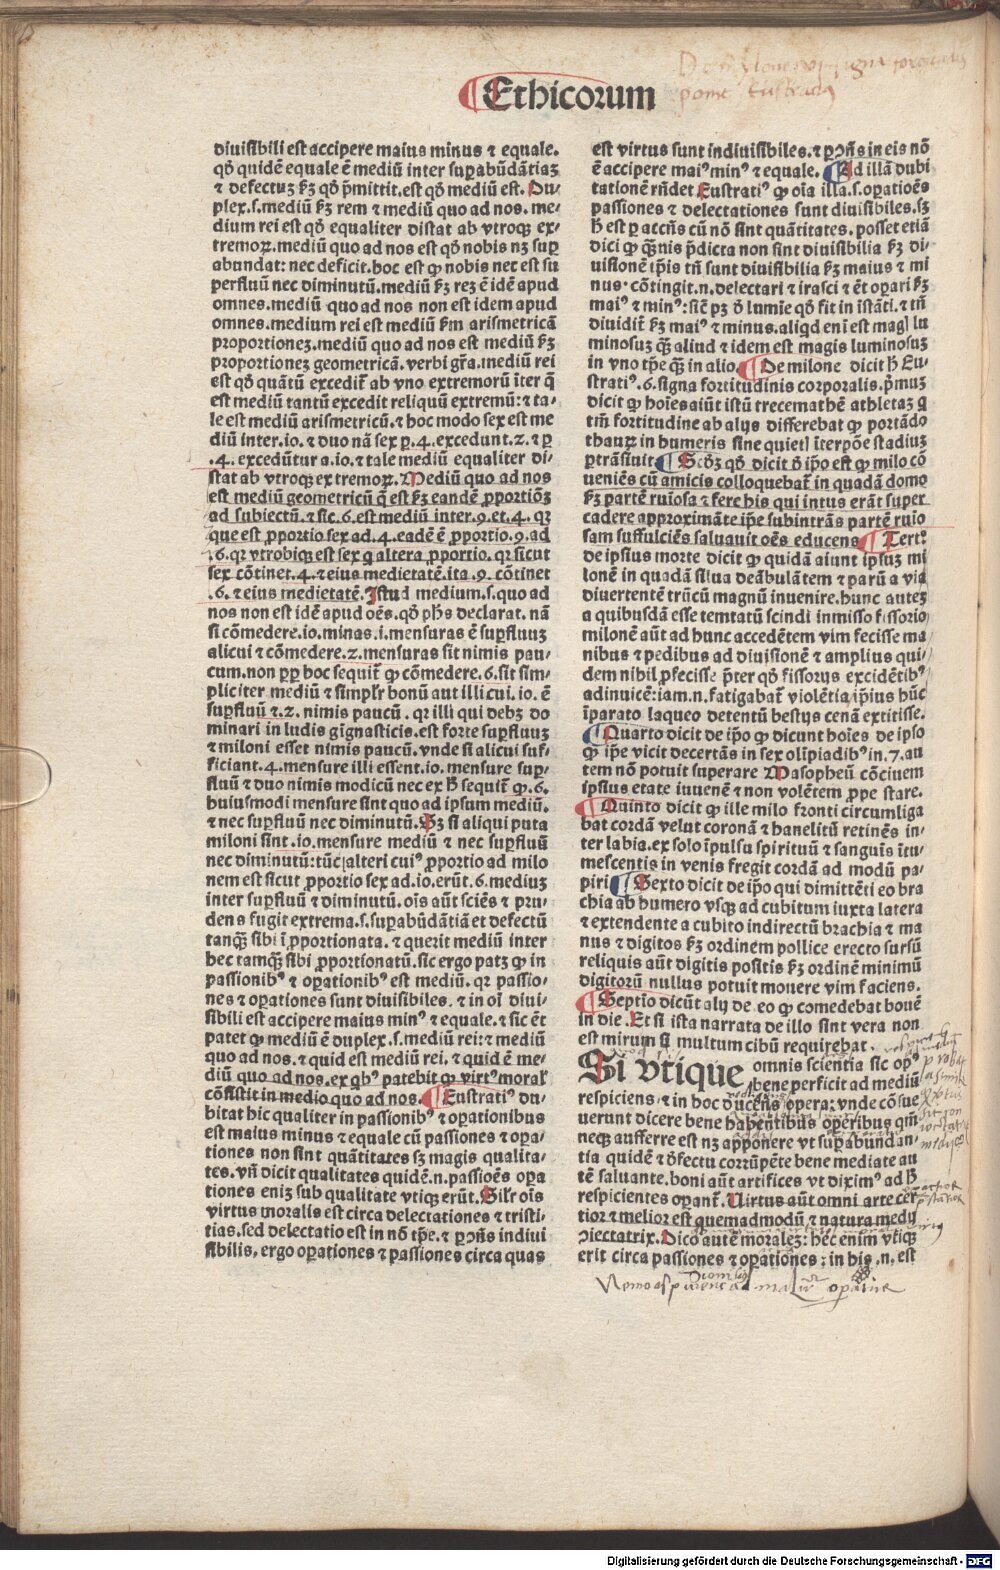 Ethicorum
diuisibili est accipere maius minus ⁊ equale.
qḋ quidē equale ē mediū inter suꝑabūdātiaꝫ
⁊ defectuꝫ ẜꝫ qḋ p̄mittit. est qḋ mediū est. Du-
plex.s.mediū ẜꝫ rem ⁊ mediū quo ad nos. me-
dium rei est qḋ equaliter distat ab vtroqꝫ ex-
tremoꝝ.mediū quo ad nos est qḋ nobis nꝫ suꝑ
abundat: nec deficit. hoc est ꝙ nobis nec est su
perfluū nec diminutū.mediū ẜꝫ reꝫ ē idē apud
omnes. mediū quo ad nos non est idem apud
omnes. medium rei est mediū ẜm arismetricā
proportioneꝫ. mediū quo ad nos est mediū ẜꝫ
proportioneꝫ geometricā. verbi gr̄a. mediū rei
est qḋ quātū excedit̄ ab vno extremorū īter q̄
est mediū tantū excedit reliquū extremū: ⁊ ta-
le est mediū arismetricū. ⁊ hoc modo sex est me
diū inter.io. ⁊ duo nā sex ꝑ.4.excedunt.2. ⁊ ꝑ
.4. excedūtur a.io. ⁊ tale mediū equaliter di-
stat ab vtroqꝫ extremoꝝ. Mediū quo ad nos
est mediū geometricū q̄ est ẜꝫ eandē ꝓportiōꝫ
ad subiectū. ⁊ sic.6.est mediū inter.9.et.4. qꝛ
que est ꝓportio sex ad.4.eadē ē ꝓportio.9.ad
.6. qꝛ vtrobiqꝫ est sex q̄ altera ꝓportio. qꝛ sicut
sex cōtinet.4. ⁊ eius medietatē. ita.9. cōtinet
.6. ⁊ eius medietatē. Istud medium.s. quo ad
nos non est idē apud oēs. qḋ phs declarat. nā
si cōmedere.io.minas.i.mensuras ē suꝑfluuꝫ
alicui ⁊ cōmedere.2.mensuras sit nimis pau-
cum.non ꝓꝑ hoc sequit̄ ꝙ cōmedere.6.sit sim-
pliciter mediū ⁊ simpl̄r bonū aut illi cui.io. ē
suꝑfluū ⁊.2. nimis paucū. qꝛ illi qui debꝫ do
minari in ludis gignasticis. est forte suꝑfluuꝫ
⁊ miloni esset nimis paucū. vnde si alicui suf-
ficiant.4.mensure illi essent.io. mensure suꝑ-
fluū ⁊ duo nimis modicū nec ex ħ sequit̄ ꝙ.6.
huiusmodi mensure sint quo ad ipsum mediū.
⁊ nec suꝑfluū nec diminutū. Sꝫ si aliqui puta
miloni sint.io.mensure mediū ⁊ nec suꝑfluū
nec diminutū: tūc alteri cuiꝰ ꝓportio ad milo
nem est sicut ꝓportio sex ad.io.erūt.6.mediuꝫ
inter suꝑfluū ⁊ diminutū. oīs aūt sciēs ⁊ pru-
dens fugit extrema.s.suꝑabūdātiā et defectū
tanqꝫ sibi īꝓportionata. ⁊ querit mediū inter
hec tamqꝫ sibi ꝓportionatū. sic ergo patꝫ ꝙ in
passionibꝰ ⁊ oꝑationibꝰ est mediū. qꝛ passio-
nes ⁊ oꝑationes sunt diuisibiles. ⁊ in oī diui-
sibili est accipere maius minꝰ ⁊ equale. ⁊ sic ēt
patet ꝙ mediū ē duplex.s.mediū rei: ⁊ mediū
quo ad nos. ⁊ quid est mediū rei. ⁊ quid ē me-
diū quo ad nos. ex qbꝰ patebit ꝙ virtꝰ moral̄
cōsistit in medio quo ad nos. Eustratiꝰ du-
bitat hic qualiter in passionibꝰ ⁊ oꝑationibus
est maius minus ⁊ equale cū passiones ⁊ oꝑa-
tiones non sint quātitates sꝫ magis qualita-
tes. vn̄ dicit qualitates quidē.n.passiōes oꝑa
tiones eniꝫ sub qualitate vtiqꝫ erūt. Sil̄r oīs
virtus moralis est circa delectationes ⁊ tristi-
tias. sed delectatio est in nō tp̄e. ⁊ ꝑ ↄ̄ns indiui
sibilis. ergo oꝑationes ⁊ passiones circa quas
est virtus sunt indiuisibiles. ⁊ ꝑ ↄ̄ns in eis nō
ē accipere maiꝰ minꝰ ⁊ equale. Ad illā dubi
tationē rn̄det Eustratiꝰ ꝙ oīa illa.s.oꝑatioēs
passiones ⁊ delectationes sunt diuisibiles. sꝫ
ħ est ꝑ accn̄s cū nō sint quātitates. posset etiā
dici ꝙ qꝫnis p̄dicta non sint diuisibilia ẜꝫ di-
uisionē ip̄is tn̄ sunt diuisibilia ẜꝫ maius ⁊ mi
nus. cōtingit.n.delectari ⁊ irasci ⁊ ēt oꝑari ẜꝫ
maiꝰ ⁊ minꝰ: sic̄ pꝫ ḋ lumīe qḋ fit in īstāti. ⁊ tn̄
diuidit̄ ẜꝫ maiꝰ ⁊ minus. aliqd enī est magꝭ lu
minosuꝫ qꝫ aliud ⁊ idem est magis luminosuꝫ
in vno tp̄e qꝫ in alio. De milone dicit ħ Eu-
stratiꝰ.6.signa fortitudinis corporalis. p̄muꝫ
dicit ꝙ hoīes aiūt istū trecemathē athletaꝫ q
tm̄ fortitudine ab alijs differebat ꝙ portādo
thauꝝ in humeris sine quietꝭ īterpōe stadiuꝫ
ꝑtrāsiuit. Scḋꝫ qḋ dicit ḋ ip̄o est ꝙ milo cō
ueniēs cū amicis colloquebat̄ in quadā domo
ẜꝫ partē ruiosa ⁊ fere his qui intus erāt super
cadere approximāte ip̄e subintrās partē ruio
sam suffulciēs saluauit oēs educens. Tertꝰ
de ipsius morte dicit ꝙ quidā aiunt ipsuꝫ mi
lonē in quadā silua deābulātem ⁊ parū a via
diuertentē trūcū magnū inuenire. hunc auteꝫ
a quibusdā esse temtatū scindi inmisso fissorio
milonē aūt ad hunc accedētem vim fecisse ma
nibus ⁊ pedibus ad diuisionē ⁊ amplius qui-
dem nihil ꝑfecisse p̄ter qḋ fissorijs excidētibꝰ
adinuicē: iam.n.fatigabat̄ violētia ip̄ius hūc
īparato laqueo detentū bestijs cenā extitisse.
Quarto dicit de ip̄o ꝙ dicunt hoīes de ipso
ꝙ ip̄e vicit decertās in sex olīpiadibꝰ in.7. au
tem nō potuit superare Masopheū cōciuem
ipsius etate iuuenē ⁊ non volētem ꝓpe stare.
Quinto dicit ꝙ ille milo fronti circumliga
bat cordā velut coronā ⁊ hanelitū retinēs in-
ter labia. ex solo īpulsu spirituū ⁊ sanguīs ītu-
mescentis in venis fregit cordā ad modū pa-
piri. Sexto dicit de ip̄o qui dimittēti eo bra
chia ab humero vsqꝫ ad cubitum iuxta latera
⁊ extendente a cubito indirectū brachia ⁊ ma
nus ⁊ digitos ẜꝫ ordinem pollice erecto sursū
reliquis aūt digitis positis ẜꝫ ordinē minimū
digitorū nullus potuit mouere vim faciens.
Septīo dicūt alij de eo ꝙ comedebat bouē
in die. Et si ista narrata de illo sint vera non
est mirum si multum cibū requirebat.
Si vtique omnis scientia sic opꝰ
bene perficit ad mediū
respiciens. ⁊ in hoc ducens opera: vnde cōsue
uerunt dicere bene habentibus operibus qm̄
neqꝫ aufferre est nꝫ apponere vt suꝑabundan-
tia quidē ⁊ ḋfectu corrūpēte bene mediate au
tē saluante. boni aūt artifices vt diximꝰ ad ħ
respicientes oꝑant̄. Uirtus aūt omni arte cer
tior ⁊ melior est quemadmodū ⁊ natura medij
ↄiectatrix. Dico autē moraleꝫ: hec enim vtiqꝫ
erit circa passiones ⁊ oꝑationes: in his.n.est
Digitalisierung gefördert durch die Deutsche Forschungsgemeinschaft - DFG